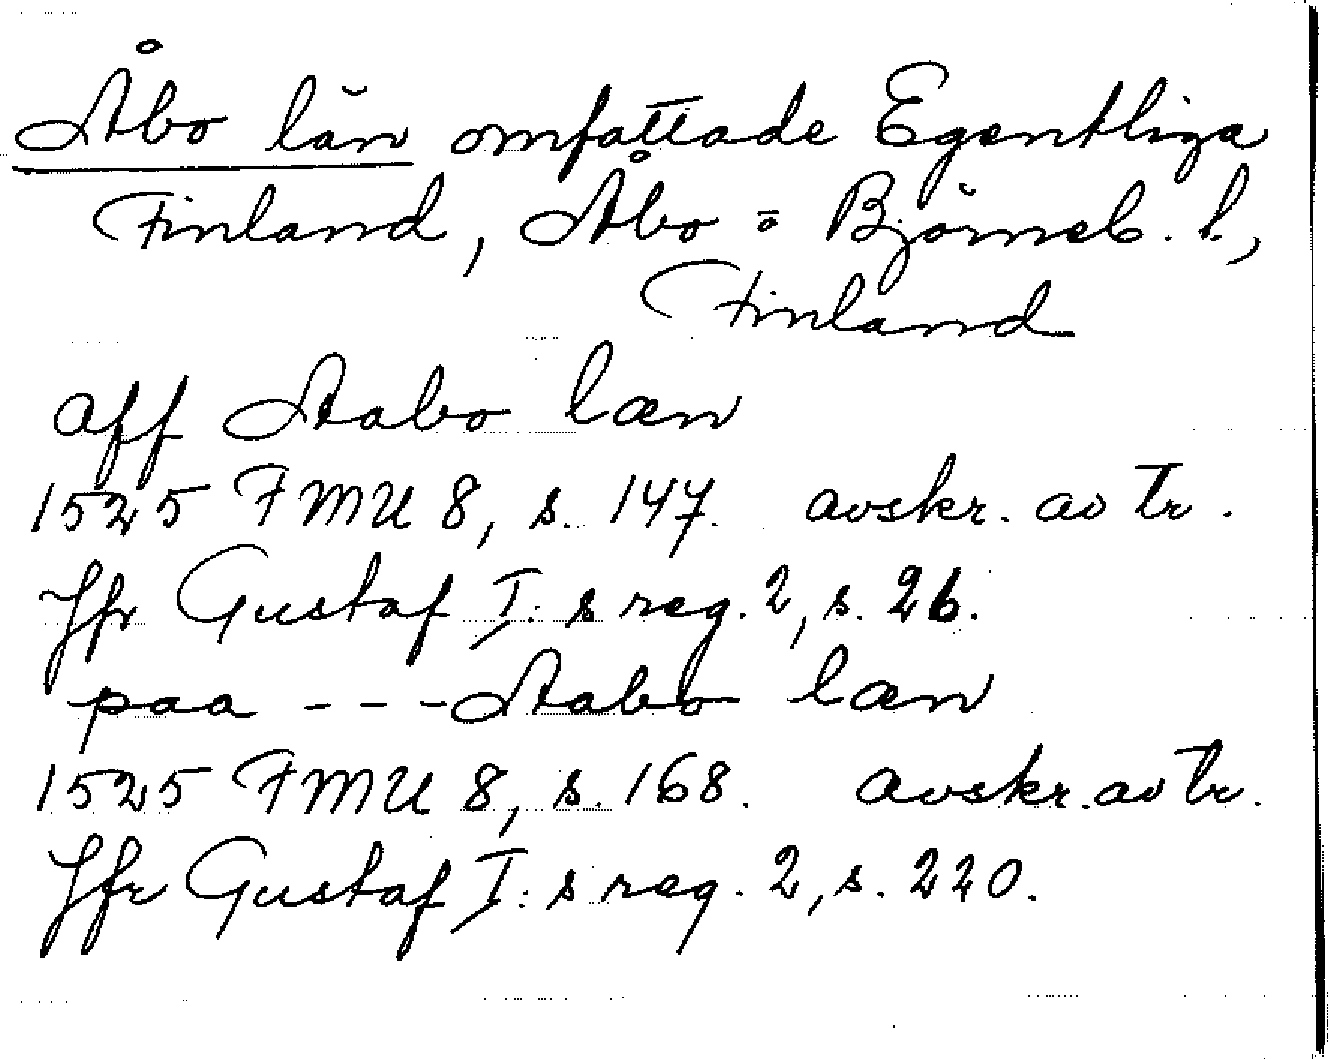 Åbo län omfattade Egentliga
Finland, Åbo o Björneb. l.,
Finland
aff Aabo læn
1525 FMU 8, s. 147. avskr. av tr.
Jfr Gustaf I:s reg. 2, s. 26.
paa --- Aabo læn
1525 FMU 8, s. 168. avskr. av tr.
Jfr Gustaf I:s reg. 2, s. 220.